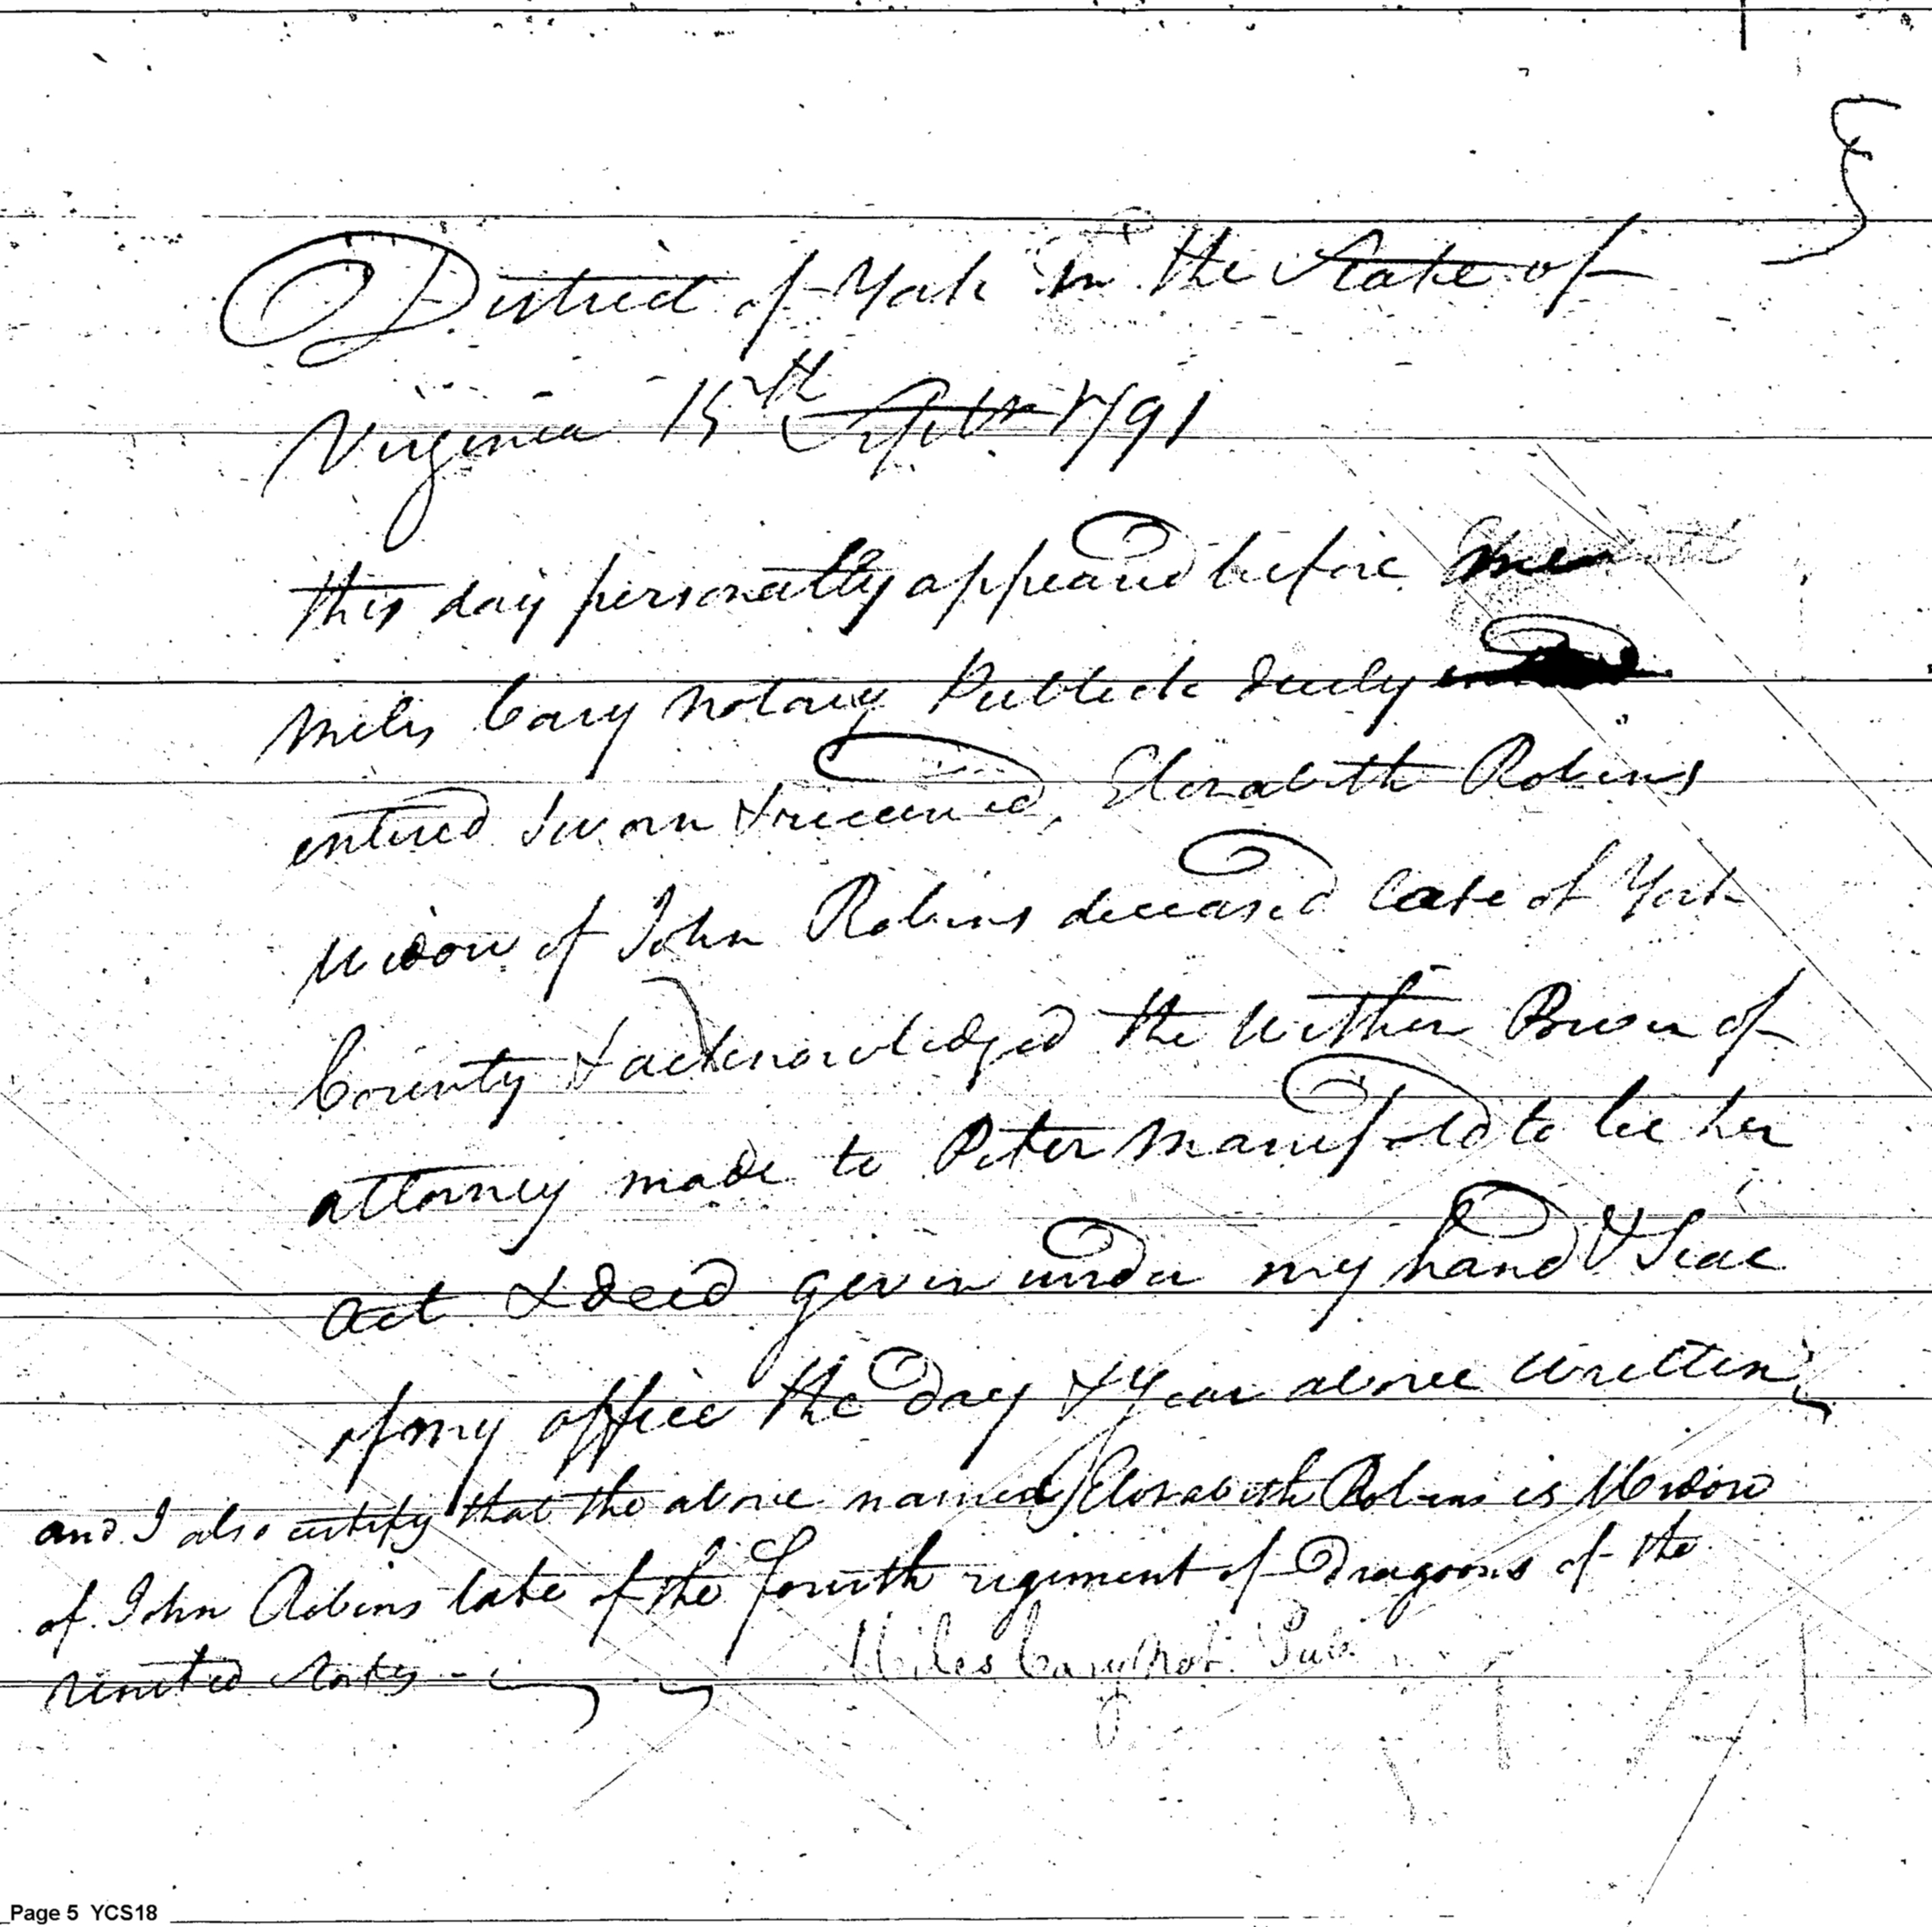 District of York in the State of
Virginia 15th Septbr 1791
this day personally appeared before me
Miles Cary Notary Publick duly
entered sworn & received, Elizabeth Robins
Widow of John Robins deceased late of York
County & acknowledged the within Power of
attorney made to Peter Manifold to be her
act & deed given under my hand & Seal
of my office the day & year above written,
and I also certify that the above named Elizabeth Robins is Widow
of John Robins late of the fourth regiment of Dragoons of the
united states -
Miles Cary Not. Pub.
Page 5 YCS18